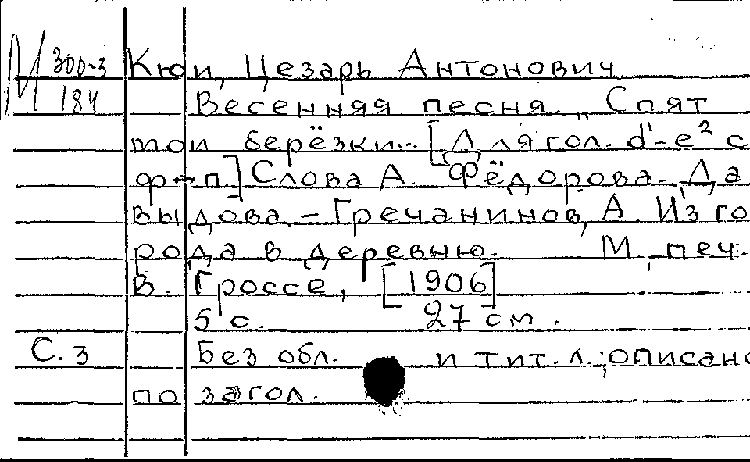 М 300-3 Кюи, Цезарь Антонович
184 Весенняя песня. "Спят
мои берёзки.. [Для гол. d'-e² с
ф-п.] Слова А. Фёдорова. Да
выдова. - Гречанинов, А. Из го
рода в деревню. М., печ.
В. Гроссе, [1906]
5 с. 27 см.
С. 3 Без обл. и тит. л.; описано
по загол.